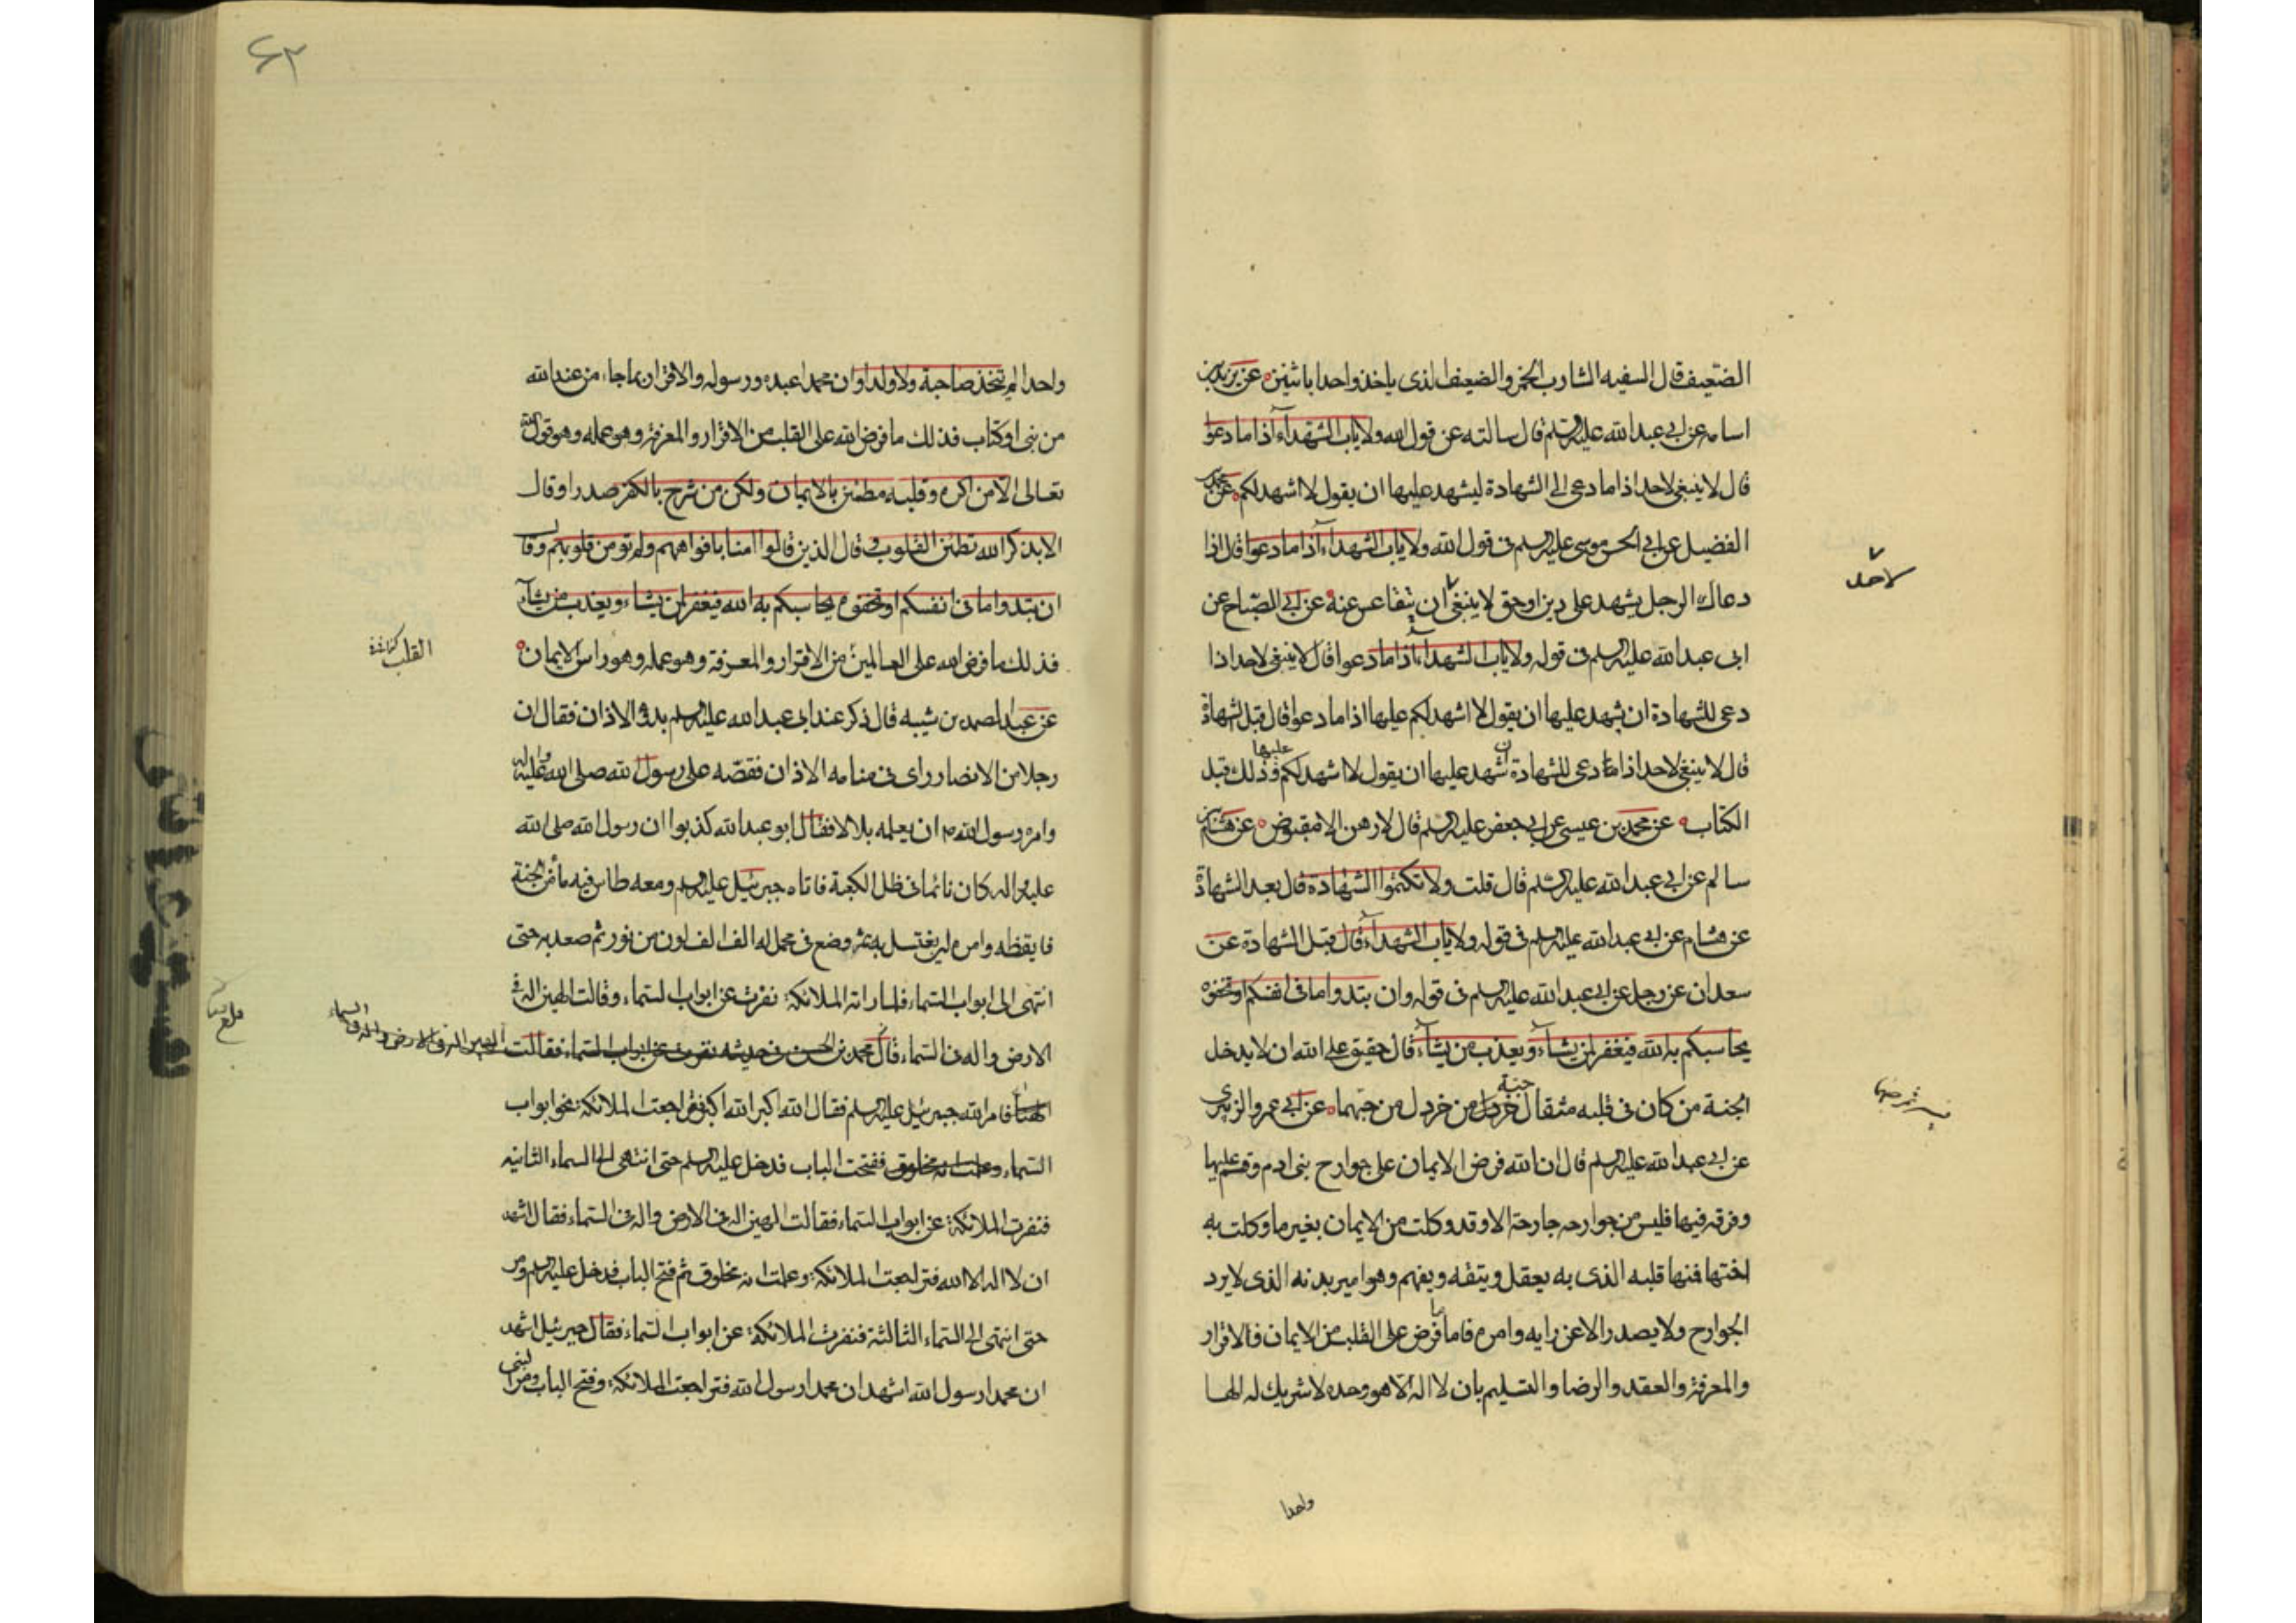 الضعيف قال السفيه الشارب الخمر والضعيف الذى ياخذ واحدا باثنين عن يزيد بن
اسامه عن ابى عبد الله عليه السلم قال سالته عن قول الله ولا ياب الشهدآء اذا ما دعوا
قال لا ينبغى لاحد اذا ما دعى الى الشهادة ليشهد عليها ان يقول لا اشهد لكم عن محمد بن
الفضيل عن ابى الحسن موسى عليه السلم فى قول الله ولا ياب الشهدآء اذا ما دعوا قال اذا
دعاك الرجل يشهد على دين او حق لا ينبغى ان يتقاعس عنه عن ابى الصباح عن
لاحد
ابى عبد الله عليه السلم فى قوله ولا ياب الشهدآء اذا ما دعوا قال لا ينبغى لاحد اذا
دعى للشهادة ان يشهد عليها ان يقول لا اشهد لكم عليها اذا ما دعوا قال قبل الشهادة
قال لا ينبغى لاحد اذا ما دعى للشهادة ان شهد عليها ان يقول لا اشهد لكم عليها وذلك قبل
الكتاب عن محمد بن عيسى عن ابى جعفر عليه السلم قال لا رهن الا مقبوض عن هشام بن
سالم عن ابى عبد الله عليه السلم قال قلت ولا تكتموا الشهادة قال بعد الشهادة
عن هشام عن ابى عبد الله عليه السلم فى قوله ولا ياب الشهدآء قال قبل الشهادة عن
سعدان عن رجل عن ابى عبد الله عليه السلم فى قوله وان تبدوا ما فى انفسكم او تخفوه
يحاسبكم به الله فيغفر لمن يشآء ويعذب من يشآء قال حقيق على الله ان لا يدخل
الجنة من كان فى قلبه مثقال حبة خردل من خردل من حبهما عن ابى عمرو الزبيرى
عن ابى عبد الله عليه السلم قال ان الله فرض الايمان على جوارح بنى ادم وقسمه عليها
وفرقه فيها فليس من جوارحه جارحة الا وقد وكلت من الايمان بغير ما وكلت به
اختها فمنها قلبه الذى به يعقل ويتفقه ويفهم وهو امير بدنه الذى لا يرد
الجوارح ولا يصدر الا عن رايه وامره فاما ما فرض على القلب من الايمان فالاقرار
والمعرفة والعقد والرضا والتسليم بان لا اله الا هو وحده لا شريك له الها
واحدا
۶۲
واحدا لم يتخذ صاحبة ولا ولدا وان محمدا عبده ورسوله والاقرار بما جاء من عند الله
من نبى او كتاب فذلك ما فرض الله على القلب من الاقرار والمعرفة وهو عمله وهو قول الله
تعالى الا من اكره وقلبه مطمئن بالايمان ولكن من شرح بالكفر صدرا وقال
الا بذكر الله تطمئن القلوب وقال الذين قالوا امنا بافواههم ولم تومن قلوبهم وقال
ان تبدوا ما فى انفسكم او تخفوه يحاسبكم به الله فيغفر لمن يشاء ويعذب من يشآء
فذلك ما فرض الله على العالمين من الاقرار والمعرفة وهو عمله وهو راس الايمان
القلب
عن عبد الصمد بن شيبه قال ذكر عند ابى عبد الله عليه السلم بدؤ الاذان فقال ان
رجلا من الانصار راى فى منامه الاذان فقصه على رسول الله صلى الله عليه واله
وامره رسول الله ص ان يعلمه بلالا فقال ابو عبد الله كذبوا ان رسول الله صلى الله
عليه واله كان نائما فى ظل الكعبة فاتاه جبرئيل عليه السلم ومعه طاس فيه ماء من الجنة
فايقظه وامره ان يغتسل به ثم وضع فى محمل له الف الف لون من نور ثم صعد به حتى
انتهى الى ابواب السماء فلما راته الملائكة نفرت عن ابواب السماء وقالت الهين اله فى
الارض واله فى السماء قال محمد بن الحسن فى حديثه نفرت عن ابواب السماء فقالت الهين اله فى الارض واله فى السماء
فامر الله جبرئيل عليه السلم فقال الله اكبر الله اكبر فتراجعت الملائكة نحو ابواب
السماء وعلمت انه مخلوق ففتحت الباب فدخل عليه السلم حتى انتهى الى السماء الثانيه
فنفرت الملائكة عن ابواب السماء فقالت الهين اله فى الارض واله فى السماء فقال اشهد
ان لا اله الا الله فتراجعت الملائكة وعلمت انه مخلوق ثم فتح الباب فدخل عليه السلم ومر
حتى انتهى الى السماء الثالثة فنفرت الملائكة عن ابواب السماء فقال جبرئيل اشهد
ان محمدا رسول الله اشهد ان محمدا رسول الله فتراجعت الملائكة وفتح الباب ومر النبى